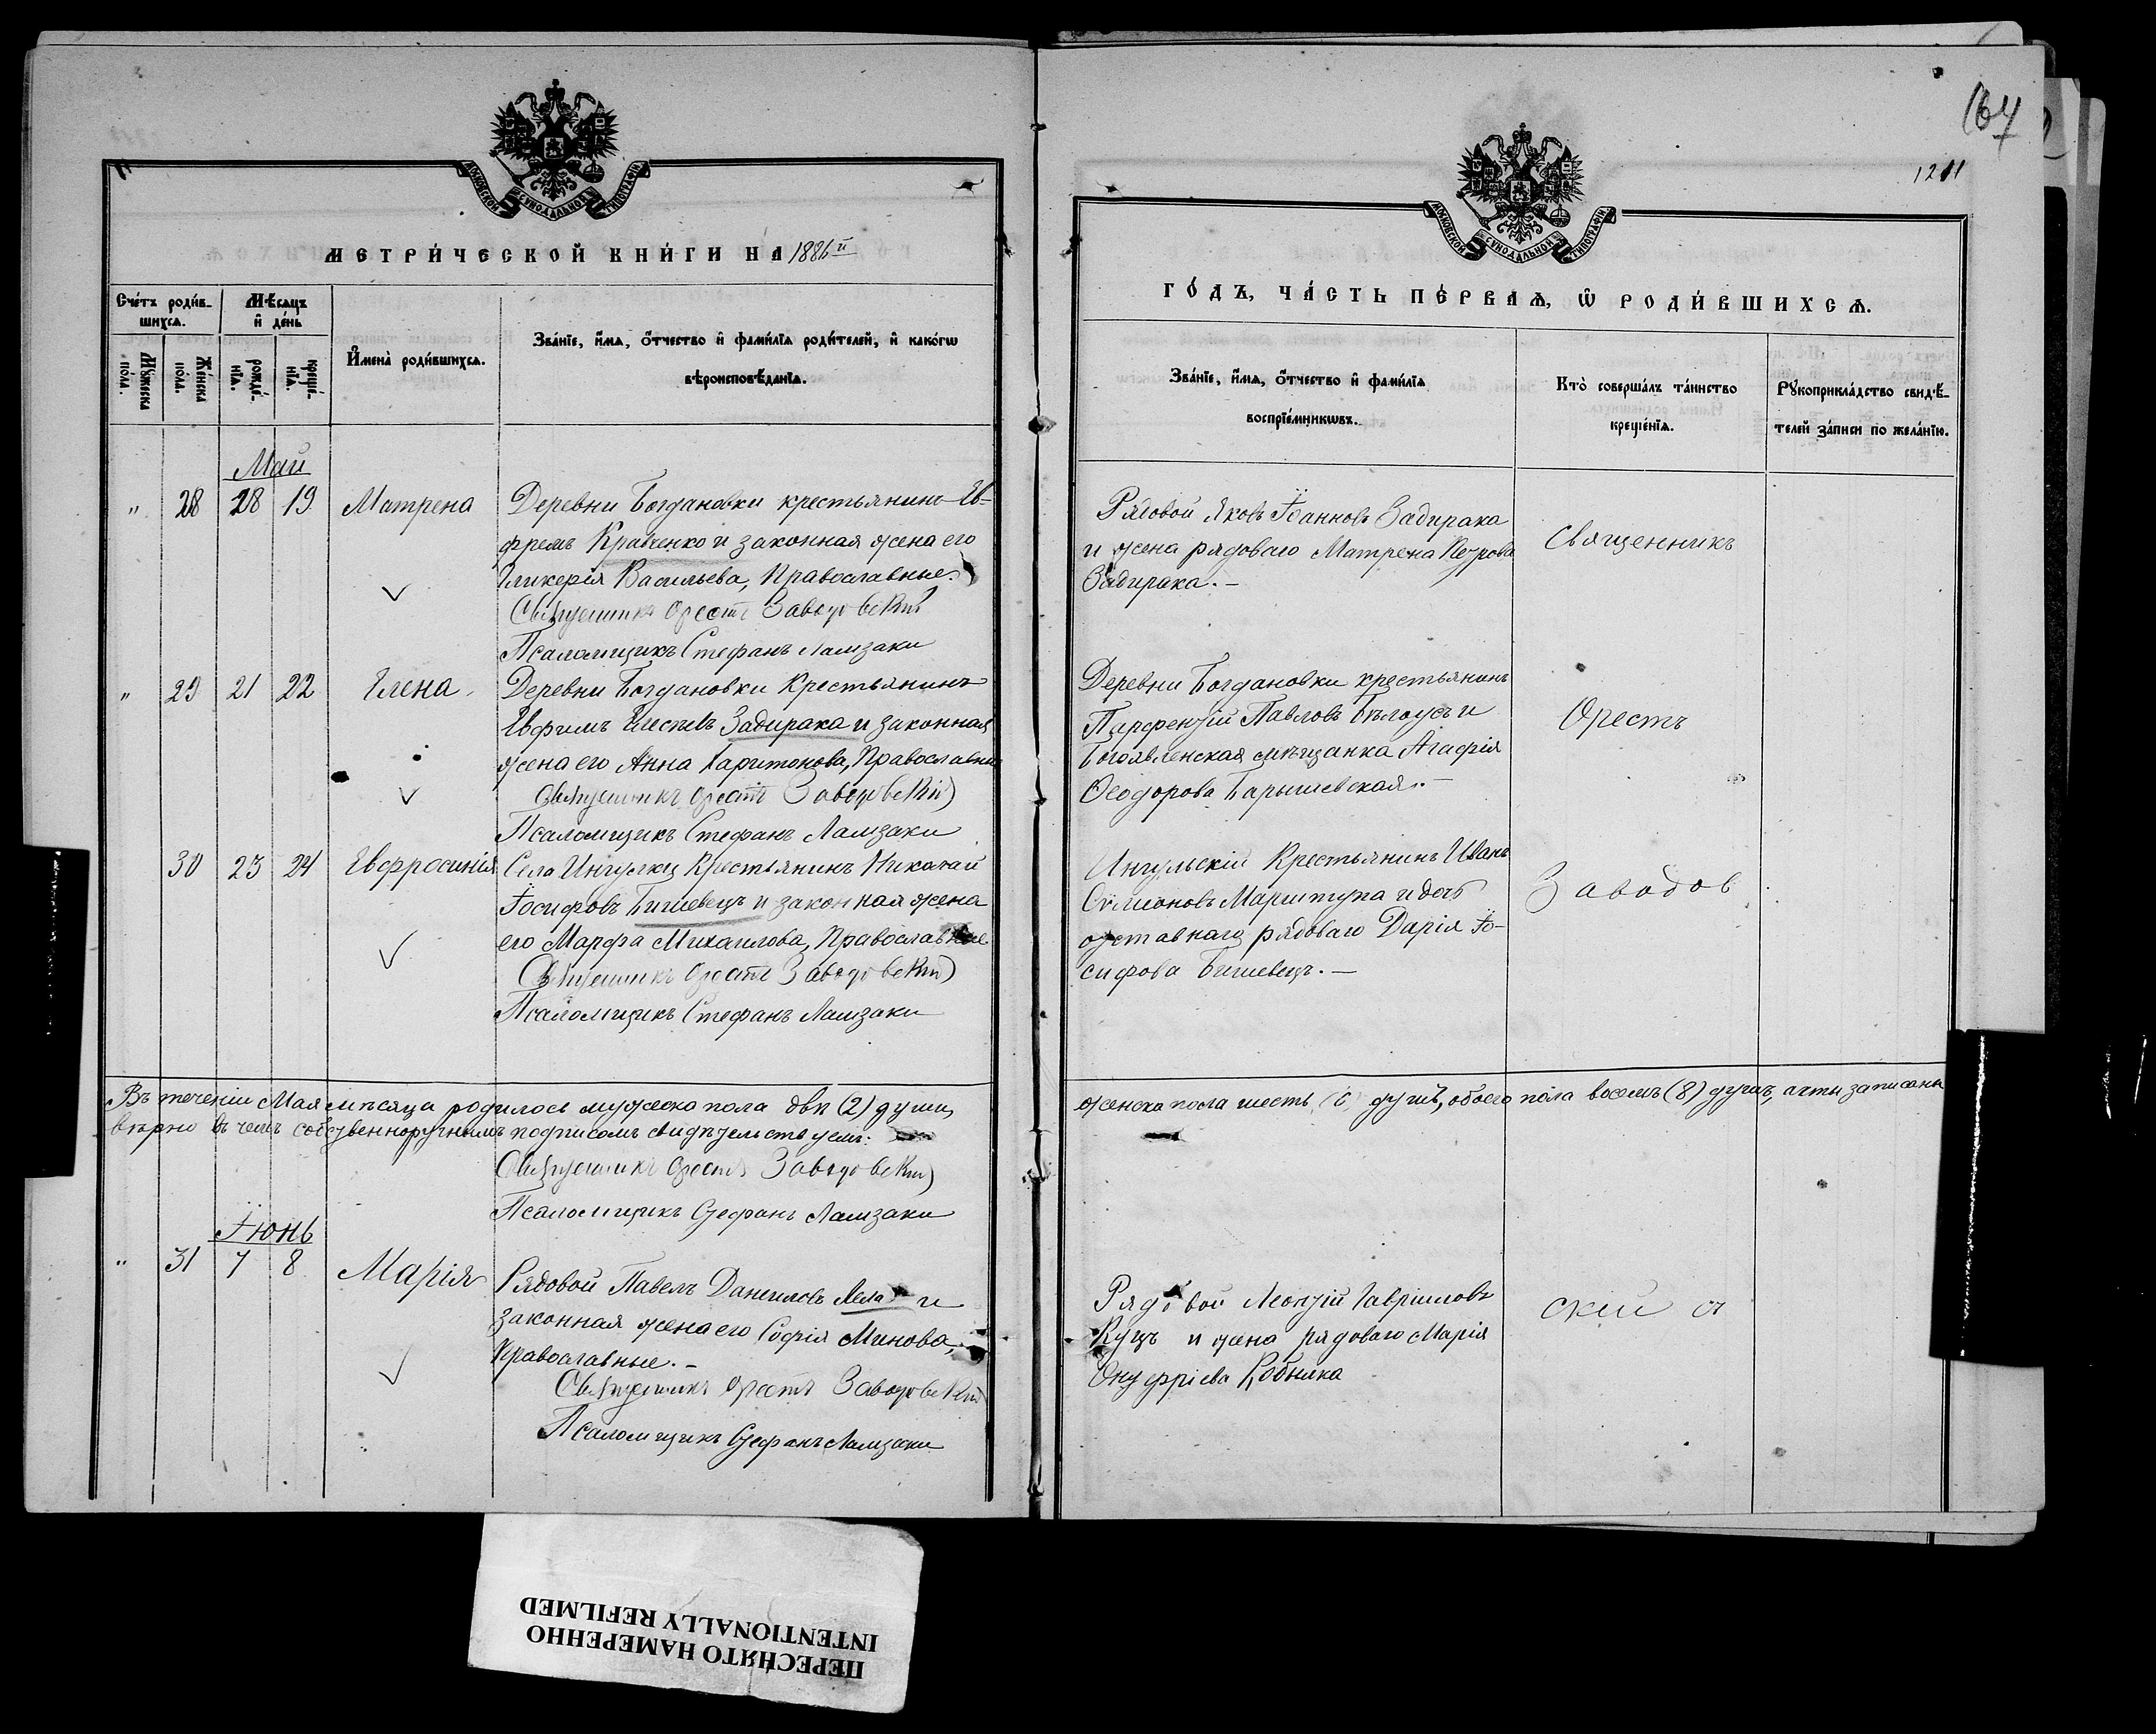 МОСКОВСКОЙ СѴНОДАЛЬНОЙ ТИПОГРАФІИ
МЕТРИ́ЧЕСКОЙ КНИ́ГИ НА 1886й
Сче́тъ роди́в-
шихсѧ.
Мѣ́сѧцъ
и҆ де́нь
Мꙋ́жеска
по́ла.
Же́нска
по́ла.
рожде́-
нїѧ.
креще́-
нїѧ.
И҆мена̀ роди́вшихсѧ.
Зва́нїе, и҆́мѧ, ѻ҆́тчество и҆ фами́лїѧ роди́телей, и҆ како́гѡ
вѣроисповѣ́данїѧ.
Май
" 28 28 19 Матрена
Деревни Богдановки крестьянинъ Еѳ-
фремъ Кравченко и законная жена его
Гликерія Васильева, Православные.
Священникъ Орестъ Заводовскій
Псаломщикъ Стефанъ Ламзаки
" 29 21 22 Елена
Деревни Богдановки Крестьянинъ
Евфимъ Задирака и законная
жена его Анна Харитонова, Православные
Священникъ Орестъ Заводовскій
Псаломщикъ Стефанъ Ламзаки
30 23 24 Евфросинія
Села Ингулки Крестьянинъ Николай
Іосифовъ Бишевецъ и законная жена
его Марфа Михаилова, Православные
Священникъ Орестъ Заводовскій
Псаломщикъ Стефанъ Ламзаки
Въ теченіи Мая мѣсяца родилось мужеско пола двѣ (2) души,
вѣрно въ чемъ собственноручнымъ подписомъ свидѣтельствуемъ:
Священникъ Орестъ Заводовскій
Псаломщикъ Стефанъ Ламзаки
Іюнь
" 31 7 8 Марія
Рядовой Павелъ Даниловъ и
законная жена его Софія Минова,
Православные.
Священникъ Орестъ Заводовскій
Псаломщикъ Стефанъ Ламзаки
167
1211
МОСКОВСКОЙ СѴНОДАЛЬНОЙ ТИПОГРАФІИ
ГО́ДЪ, ЧА́СТЬ ПЕ́РВАѦ, Ѡ҆ РОДИ́ВШИХСѦ.
Зва́нїе, и҆́мѧ, ѻ҆́тчество и҆ фами́лїѧ
воспрїе́мникѡвъ.
Кто̀ соверша́лъ та́инство
креще́нїѧ.
Рꙋкоприкла́дство свидѣ́-
телей за́писи по жела́нїю.
Рядовой Яковъ Іоанновъ Задирака
и жена рядоваго Матрена Петрова
Задирака.
Священникъ
Деревни Богдановки крестьянинъ
Парфентій Павловъ Бѣлоусъ и
Богоявленская мѣщанка Агафія
Ѳеодорова Барышевская.
Орестъ
Ингульскій Крестьянинъ Иванъ
Сѵмеоновъ Марштупа и дочь
отставнаго рядоваго Дарія Іо-
сифова Бишевецъ.
Заводов
женска пола шесть (6) душъ, обоего пола восемь (8) душъ, акты записаны
Рядовой Леонтій Гавріиловъ
Куцъ и жена рядоваго Марія
Онуфріева
скій
ПЕРЕСНЯТО НАМЕРЕННО
INTENTIONALLY REFILMED